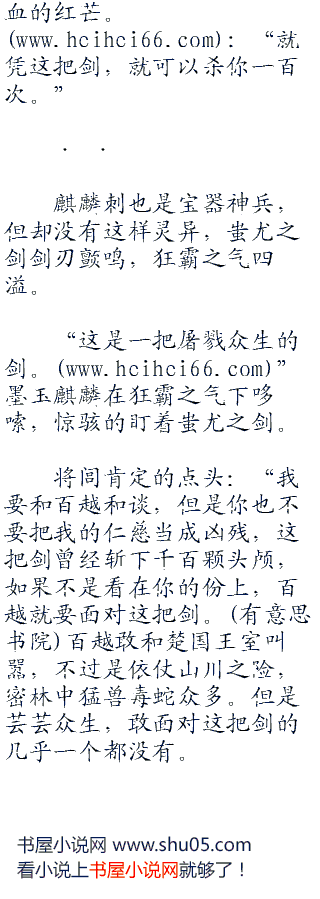 血的红芒。
(www.hcihci66.com)：“就
凭这把剑，就可以杀你一百
次。”
. .
麒麟刺也是宝器神兵，
但却没有这样灵异，蚩尤之
剑剑刃颤鸣，狂霸之气四
溢。
“这是一把屠戮众生的
剑。(www.hcihci66.com)”
墨玉麒麟在狂霸之气下哆
嗦，惊骇的盯着蚩尤之剑。
将闾肯定的点头：“我
要和百越和谈，但是你也不
要把我的仁慈当成凶残，这
把剑曾经斩下千百颗头颅，
如果不是看在你的份上，百
越就要面对这把剑。(有意思
书院)百越敢和楚国王室叫
嚣，不过是依仗山川之险，
密林中猛兽毒蛇众多。但是
芸芸众生，敢面对这把剑的
几乎一个都没有。
书屋小说网 www.shu05.com
看小说上书屋小说网就够了！